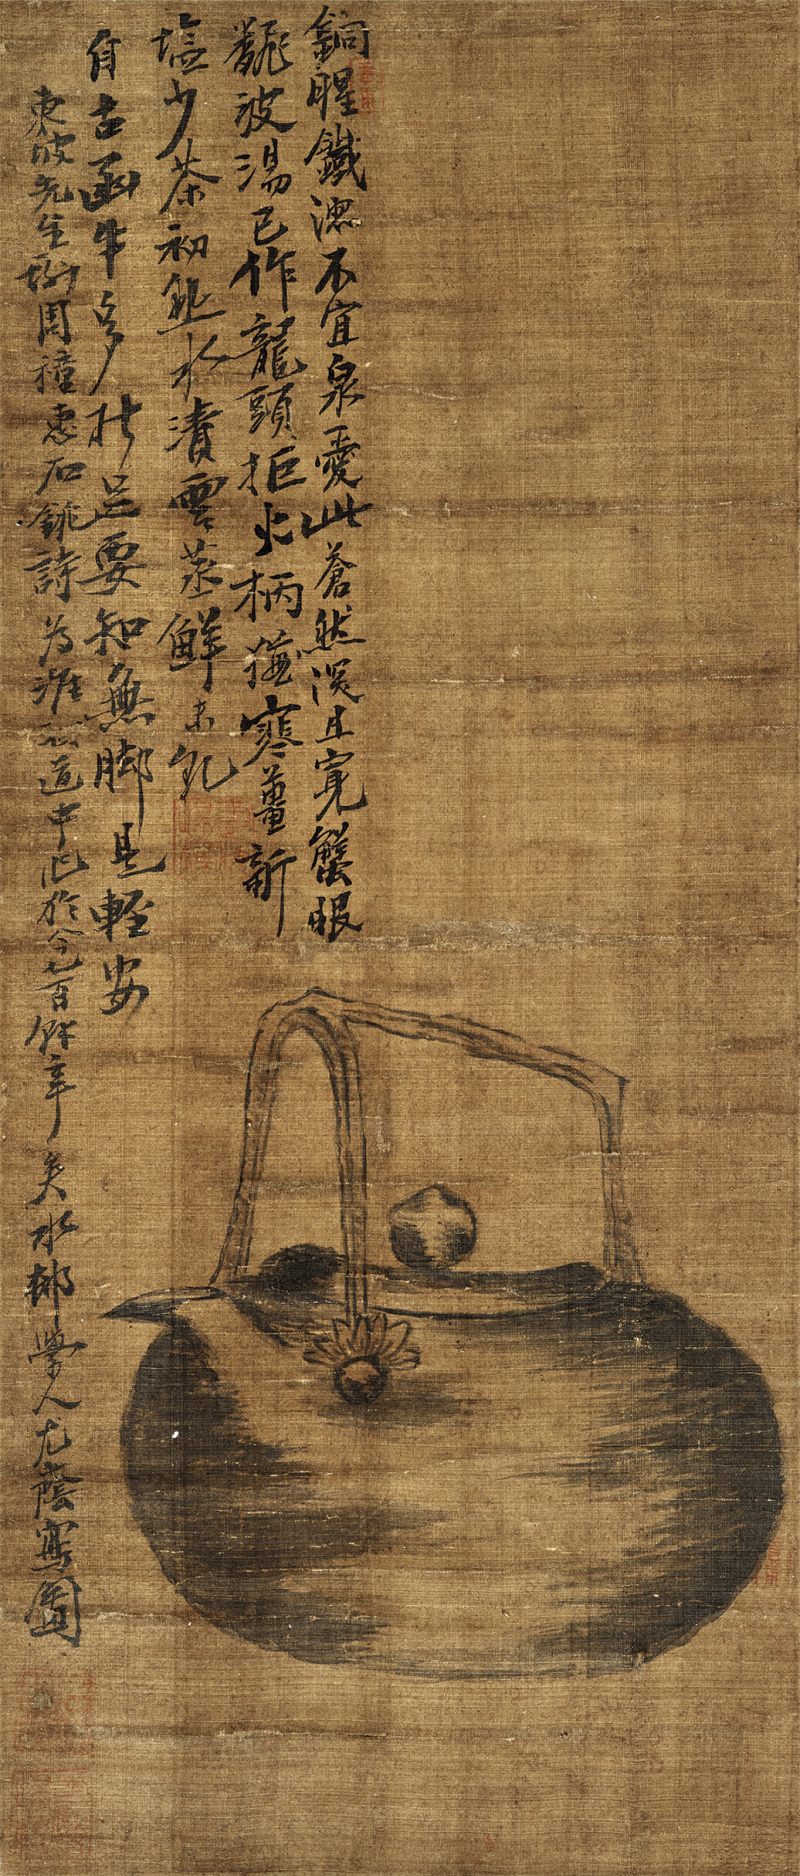 銅腥鐵澀不宜泉愛此蒼然深且寬蟹眼
飜波湯已作龍頭拒火柄猶寒薑新
塩少茶初熟水漬雲蒸鮮未乾
自古函牛多折足要知無脚是輕安
東坡先生謝周穜惠石銚詩為道中作於今七百餘年矣水邨學人尤蔭寫圖